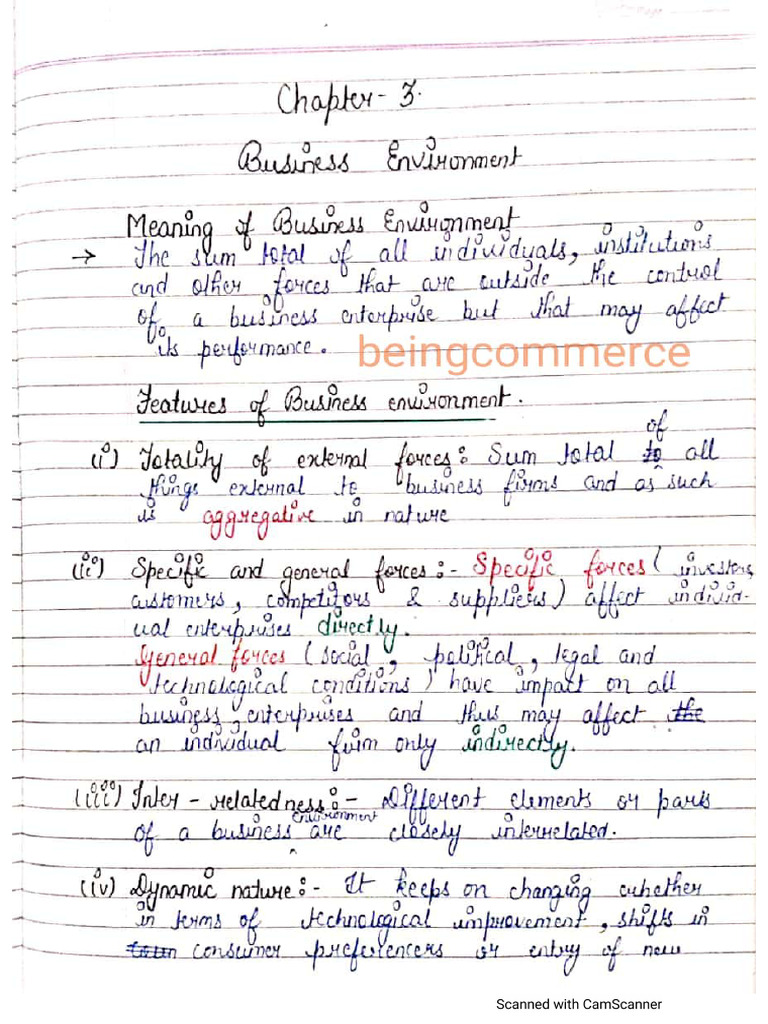 Chapter - 3.
Business Environment
Meaning of Business Environment
→ The sum total of all individuals, institutions
and other forces that are outside the control
of a business enterprise but that may affect
its performance.
beingcommerce
Features of Business environment.
(i) Totality of external forces: Sum total of to all
things external to business firms and as such
is aggregative in nature
(ii) Specific and general forces :- Specific forces ( investers,
customers, competitors & suppliers) affect individ-
ual enterprises directly.
General forces (social, political, legal and
technological conditions) have impact on all
business enterprises and thus may affect the
an individual firm only indirectly.
(iii) Inter - relatedness :- Different elements or parts
of a business environment are closely interrelated.
(iv) Dynamic nature :- It keeps on changing whether
in terms of technological improvement, shifts in
consumer preferencers or entry of new
Scanned with CamScanner